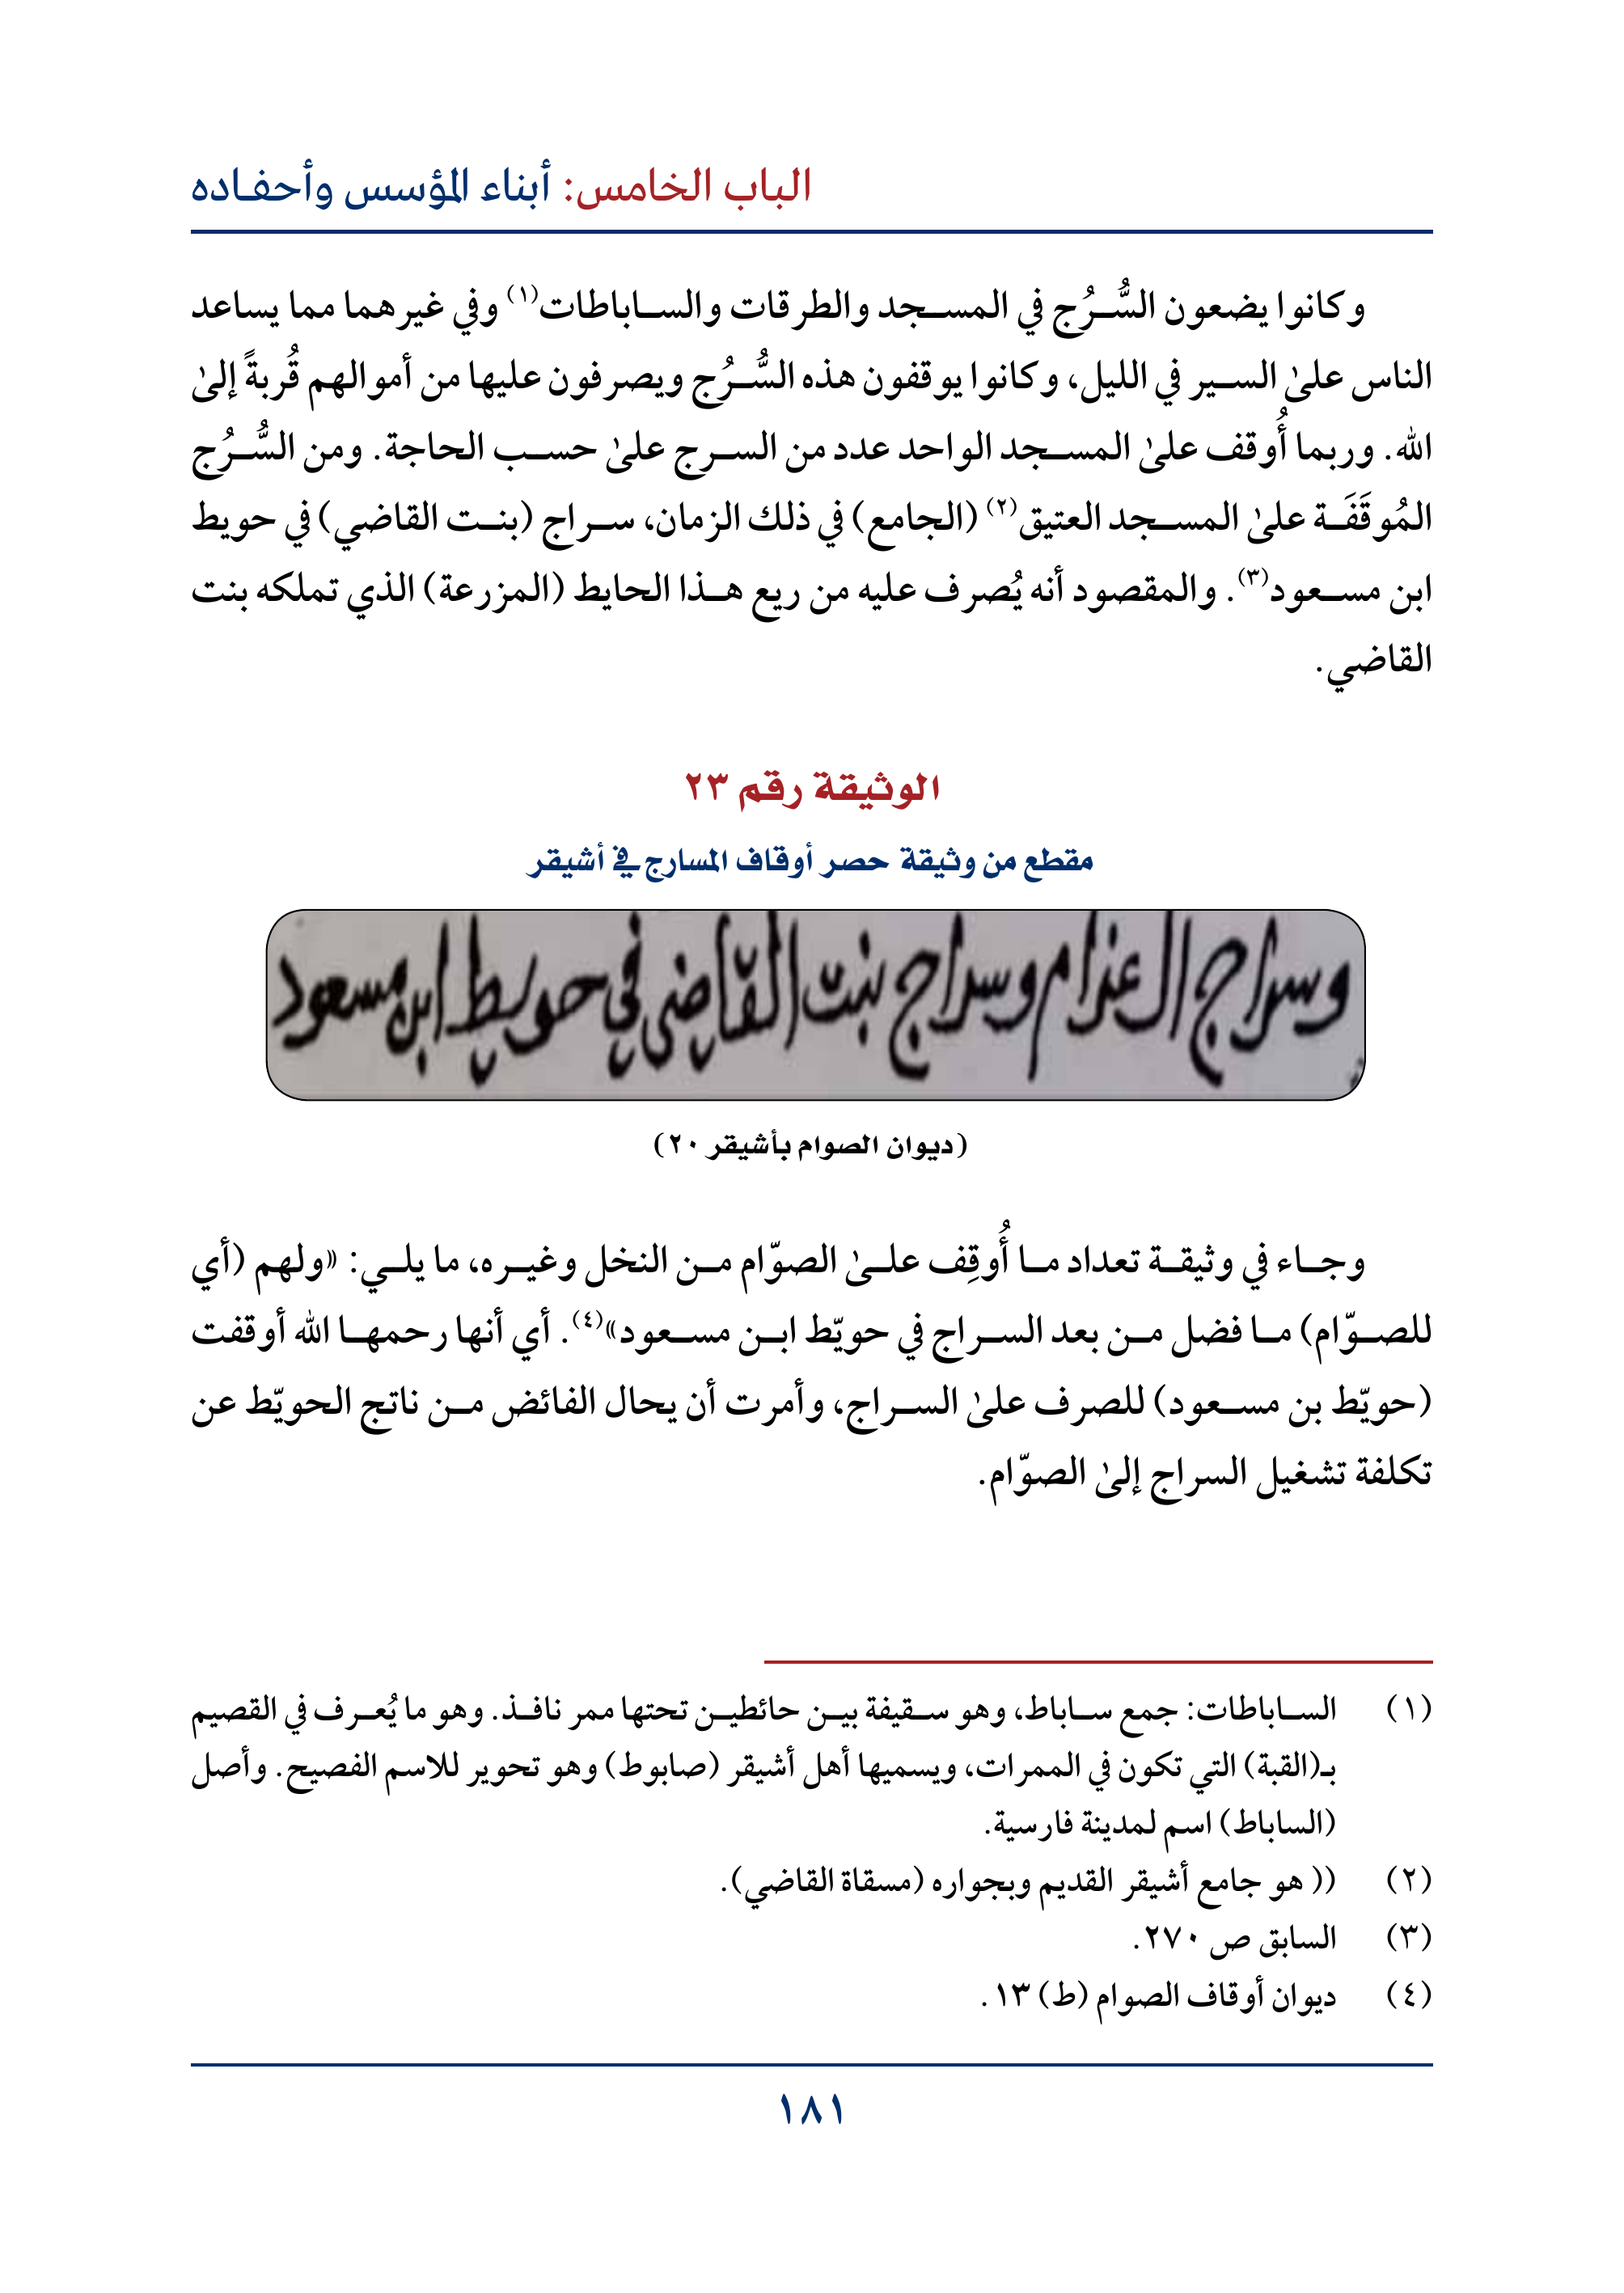 الباب الخامس: أبناء المؤسس وأحفاده
وكانوا يضعون السُّرُج في المسجد والطرقات والساباطات(١) وفي غيرهما مما يساعد
الناس علىٰ السير في الليل، وكانوا يوقفون هذه السُّرُج ويصرفون عليها من أموالهم قُربةً إلىٰ
الله. وربما أُوقف علىٰ المسجد الواحد عدد من السرج علىٰ حسب الحاجة. ومن السُّرُج
المُوقَفَة علىٰ المسجد العتيق(٢) (الجامع) في ذلك الزمان، سراج (بنت القاضي) في حويط
ابن مسعود(٣). والمقصود أنه يُصرف عليه من ريع هذا الحايط (المزرعة) الذي تملكه بنت
القاضي.
الوثيقة رقم ٢٣
مقطع من وثيقة حصر أوقاف المسارج في أشيقر
وسراج العزام وسراج بنت القاضي في حويط ابن مسعود
(ديوان الصوام بأشيقر ٢٠)
وجاء في وثيقة تعداد ما أُوقِف علىٰ الصوّام من النخل وغيره، ما يلي: «ولهم (أي
للصوّام) ما فضل من بعد السراج في حويّط ابن مسعود»(٤). أي أنها رحمها الله أوقفت
(حويّط بن مسعود) للصرف علىٰ السراج، وأمرت أن يحال الفائض من ناتج الحويّط عن
تكلفة تشغيل السراج إلىٰ الصوّام.
(١) الساباطات: جمع ساباط، وهو سقيفة بين حائطين تحتها ممر نافذ. وهو ما يُعرف في القصيم
بـ(القبة) التي تكون في الممرات، ويسميها أهل أشيقر (صابوط) وهو تحوير للاسم الفصيح. وأصل
(الساباط) اسم لمدينة فارسية.
(٢) (( هو جامع أشيقر القديم وبجواره (مسقاة القاضي).
(٣) السابق ص ٢٧٠.
(٤) ديوان أوقاف الصوام (ط) ١٣.
١٨١